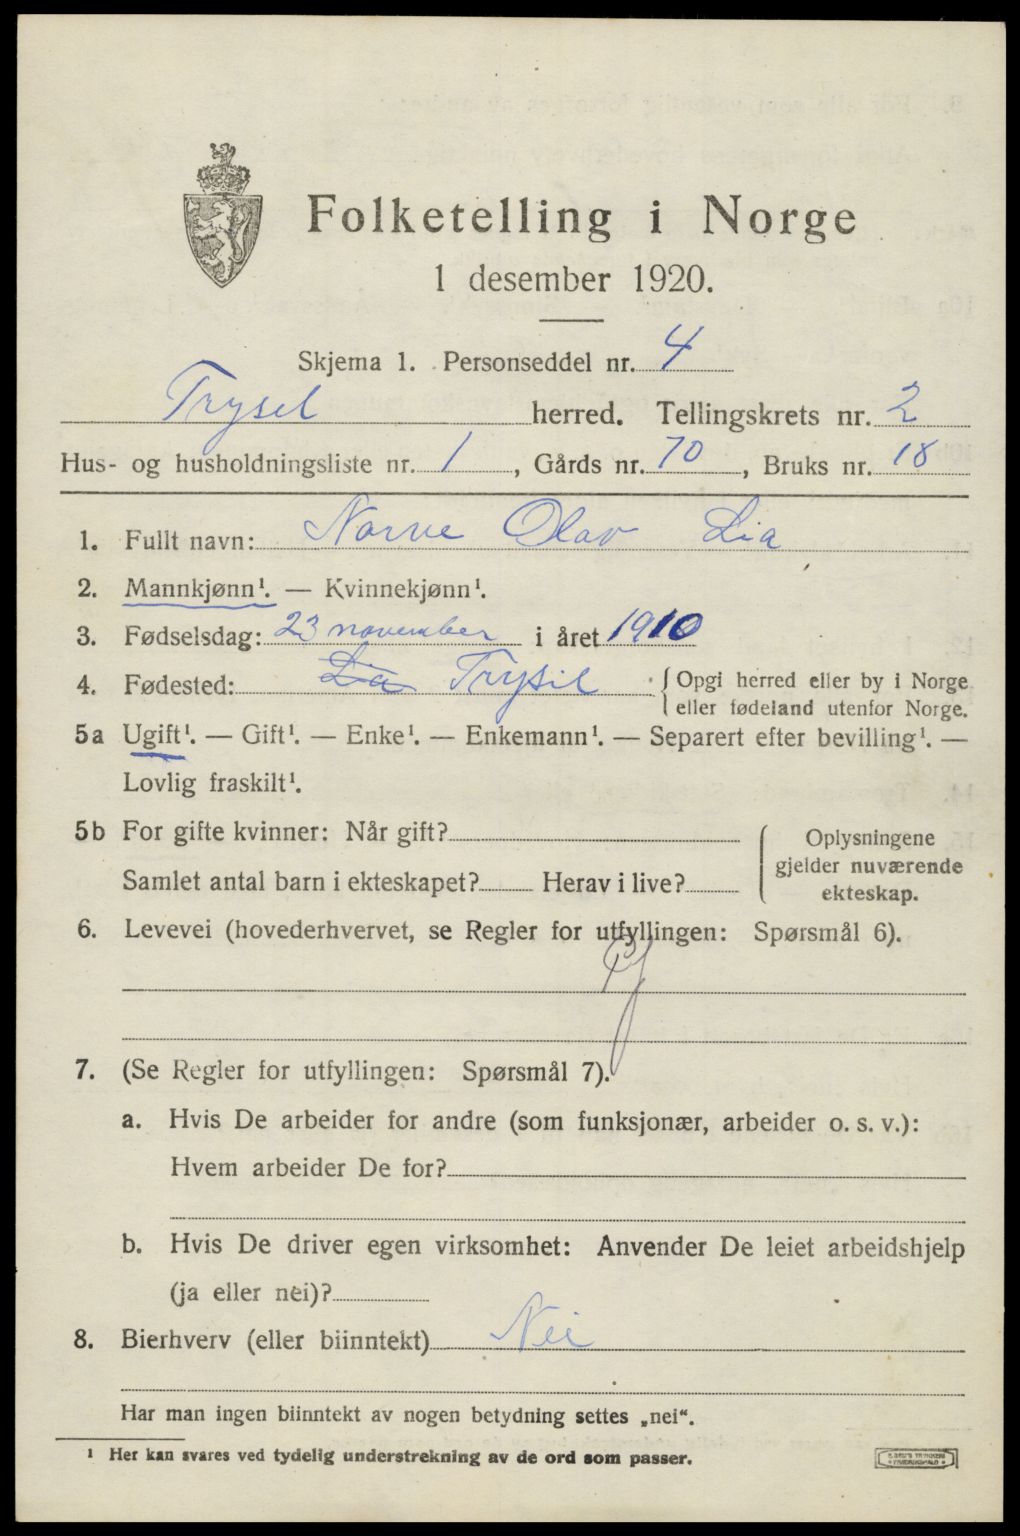 Folketelling i Norge
1 desember 1920.
Skjema 1. Personseddel nr. 4
Trysil herred. Tellingskrets nr. 2
Hus- og husholdningsliste nr. 1, Gårds nr. 70, Bruks nr. 18
1. Fullt navn: Narve Olav Lia
2. Mannkjønn¹. — Kvinnekjønn¹.
3. Fødselsdag: 23 november i året 1910
4. Fødested: Lia Trysil { Opgi herred eller by i Norge
eller fødeland utenfor Norge.
5a Ugift¹. — Gift¹. — Enke¹. — Enkemann¹. — Separert efter bevilling¹. —
Lovlig fraskilt¹.
5b For gifte kvinner: Når gift?
Samlet antal barn i ekteskapet? Herav i live?
Oplysningene
gjelder nuværende
ekteskap.
6. Levevei (hovederhvervet, se Regler for utfyllingen: Spørsmål 6).
7. (Se Regler for utfyllingen: Spørsmål 7).
a. Hvis De arbeider for andre (som funksjonær, arbeider o. s. v.):
Hvem arbeider De for?
b. Hvis De driver egen virksomhet: Anvender De leiet arbeidshjelp
(ja eller nei)?
8. Bierhverv (eller biinntekt) Nei
Har man ingen biinntekt av nogen betydning settes „nei“.
¹ Her kan svares ved tydelig understrekning av de ord som passer.